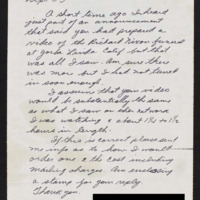 A short time ago I heard
just part of an announcement
that said you had prepared a
video of the Richard Nixon funeral
at Yorba Linda Calif but that
was all I saw. Am sure there
was much more but I had not tuned
in soon enough.
I assume that your video
would be substantially the same
as what I saw on the network
I was watching & about 1½ to 1¾
hours in length.
If this is correct please send
me info as to how I would
order one & the cost including
mailing charges. Am enclosing
a stamp for your reply.
Thank you.